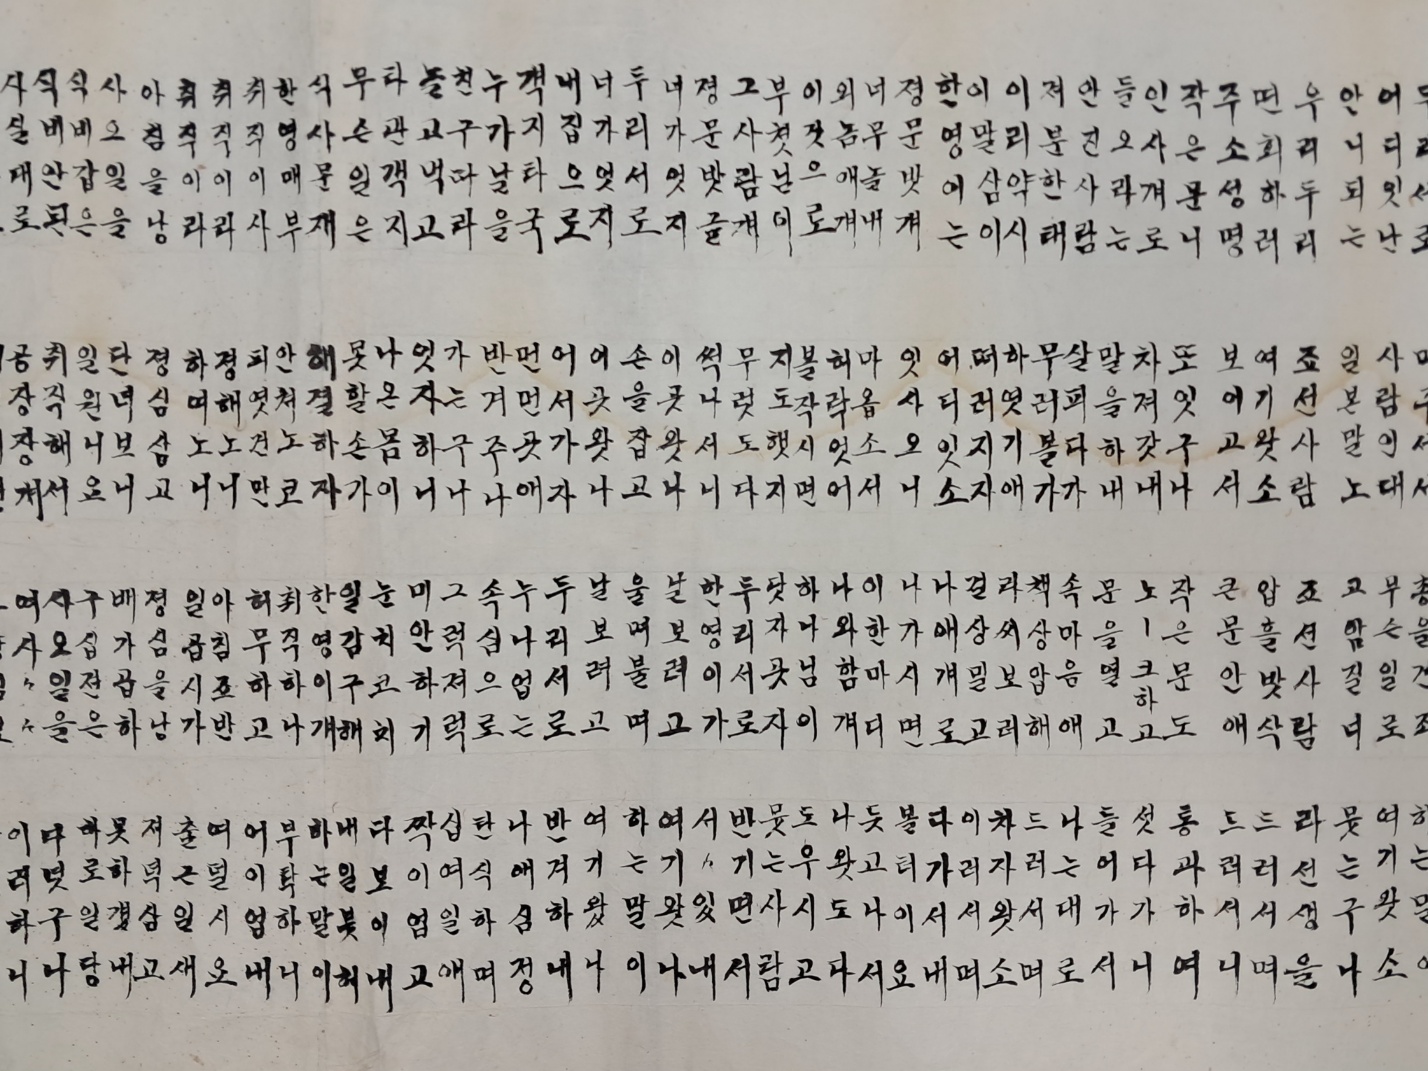 두리서로 마구서서 총을건죠 하는말이
어디잇난 사람인대 부슨일로 여기왓소
안니되는 일본말노 고암길너 뭇는구나
우리두리 죠선사람 죠션사람 라선생을
면회하러 여기왓소 압흘밧삭 드러서며
주소성명 보어고서 큰문안애 드러서니
작은문니 또잇구나 작은문도 통과하여
인사겨로 차져갓내 노ㅣ크하고 섯다가니
들오라는 말을하내 문을열고 들어가서
안건사람 살피다가 속마음애 나는대로
져분한태 무러볼가 책상압해 드러서며
이리약시 하엿기애 라씨보러 차자왓소
이말삼이 떠러지자 결상밀고 이러서며
한영어는 어디잇소 나애개로 다가서내
졍문밧겨 잇사오니 나가시면 볼터이요
너무놀내 마옴소서 이한마디 듯고나서
외놈애개 허락엇어 나와함개 나왓도다
이것으로 볼작시면 하나님이 도우시고
부쳣님이 지도햇지 닷자곳자 뭇는사람
그사람개 무럿도다 두리서로 반기면서
졍문밧귿 썩나서니 한영이가 서〃잇내
너가엇지 이곳왓나 날보려고 여기왓나
두리서로 손을잡고 울며불며 하는말이
너가엇지 어곳왓나 날보려고 여기왔나
내집으로 어서가자 두리서로 반겨하내
객지타국 먼먼곳애 누나업는 나애심정
누가날을 반거주나 속심으로 탄식하며
친구다라 가는구나 그럭져럭 십여일애
놀고먹고 엇자하니 미안하기 짝이업고
타관객지 나온몸이 눈치코치 다보이내
무슨일은 못할손가 일갑구해 내일붓허
식사문재 해결하자 한영이개 하는말이
한영매부 안쳐노코 취직하나 부탁하니
취직이사 피엿건만 허무하고 어이업내
취직이라 졍해노니 아침죠반 여덜시오
취직이라 하여노니 일곱시가 출근일새
아침을낭 졍심삼고 졍심을낭 져녁삼고
사오일을 단녁보니 배가곱하 못하갯내
식비갑은 일원니요 구십전은 하로일당
식비안된 취직해서 사오일을 다멋구나
사실대로 공장장개 여사〃〃 이려하니